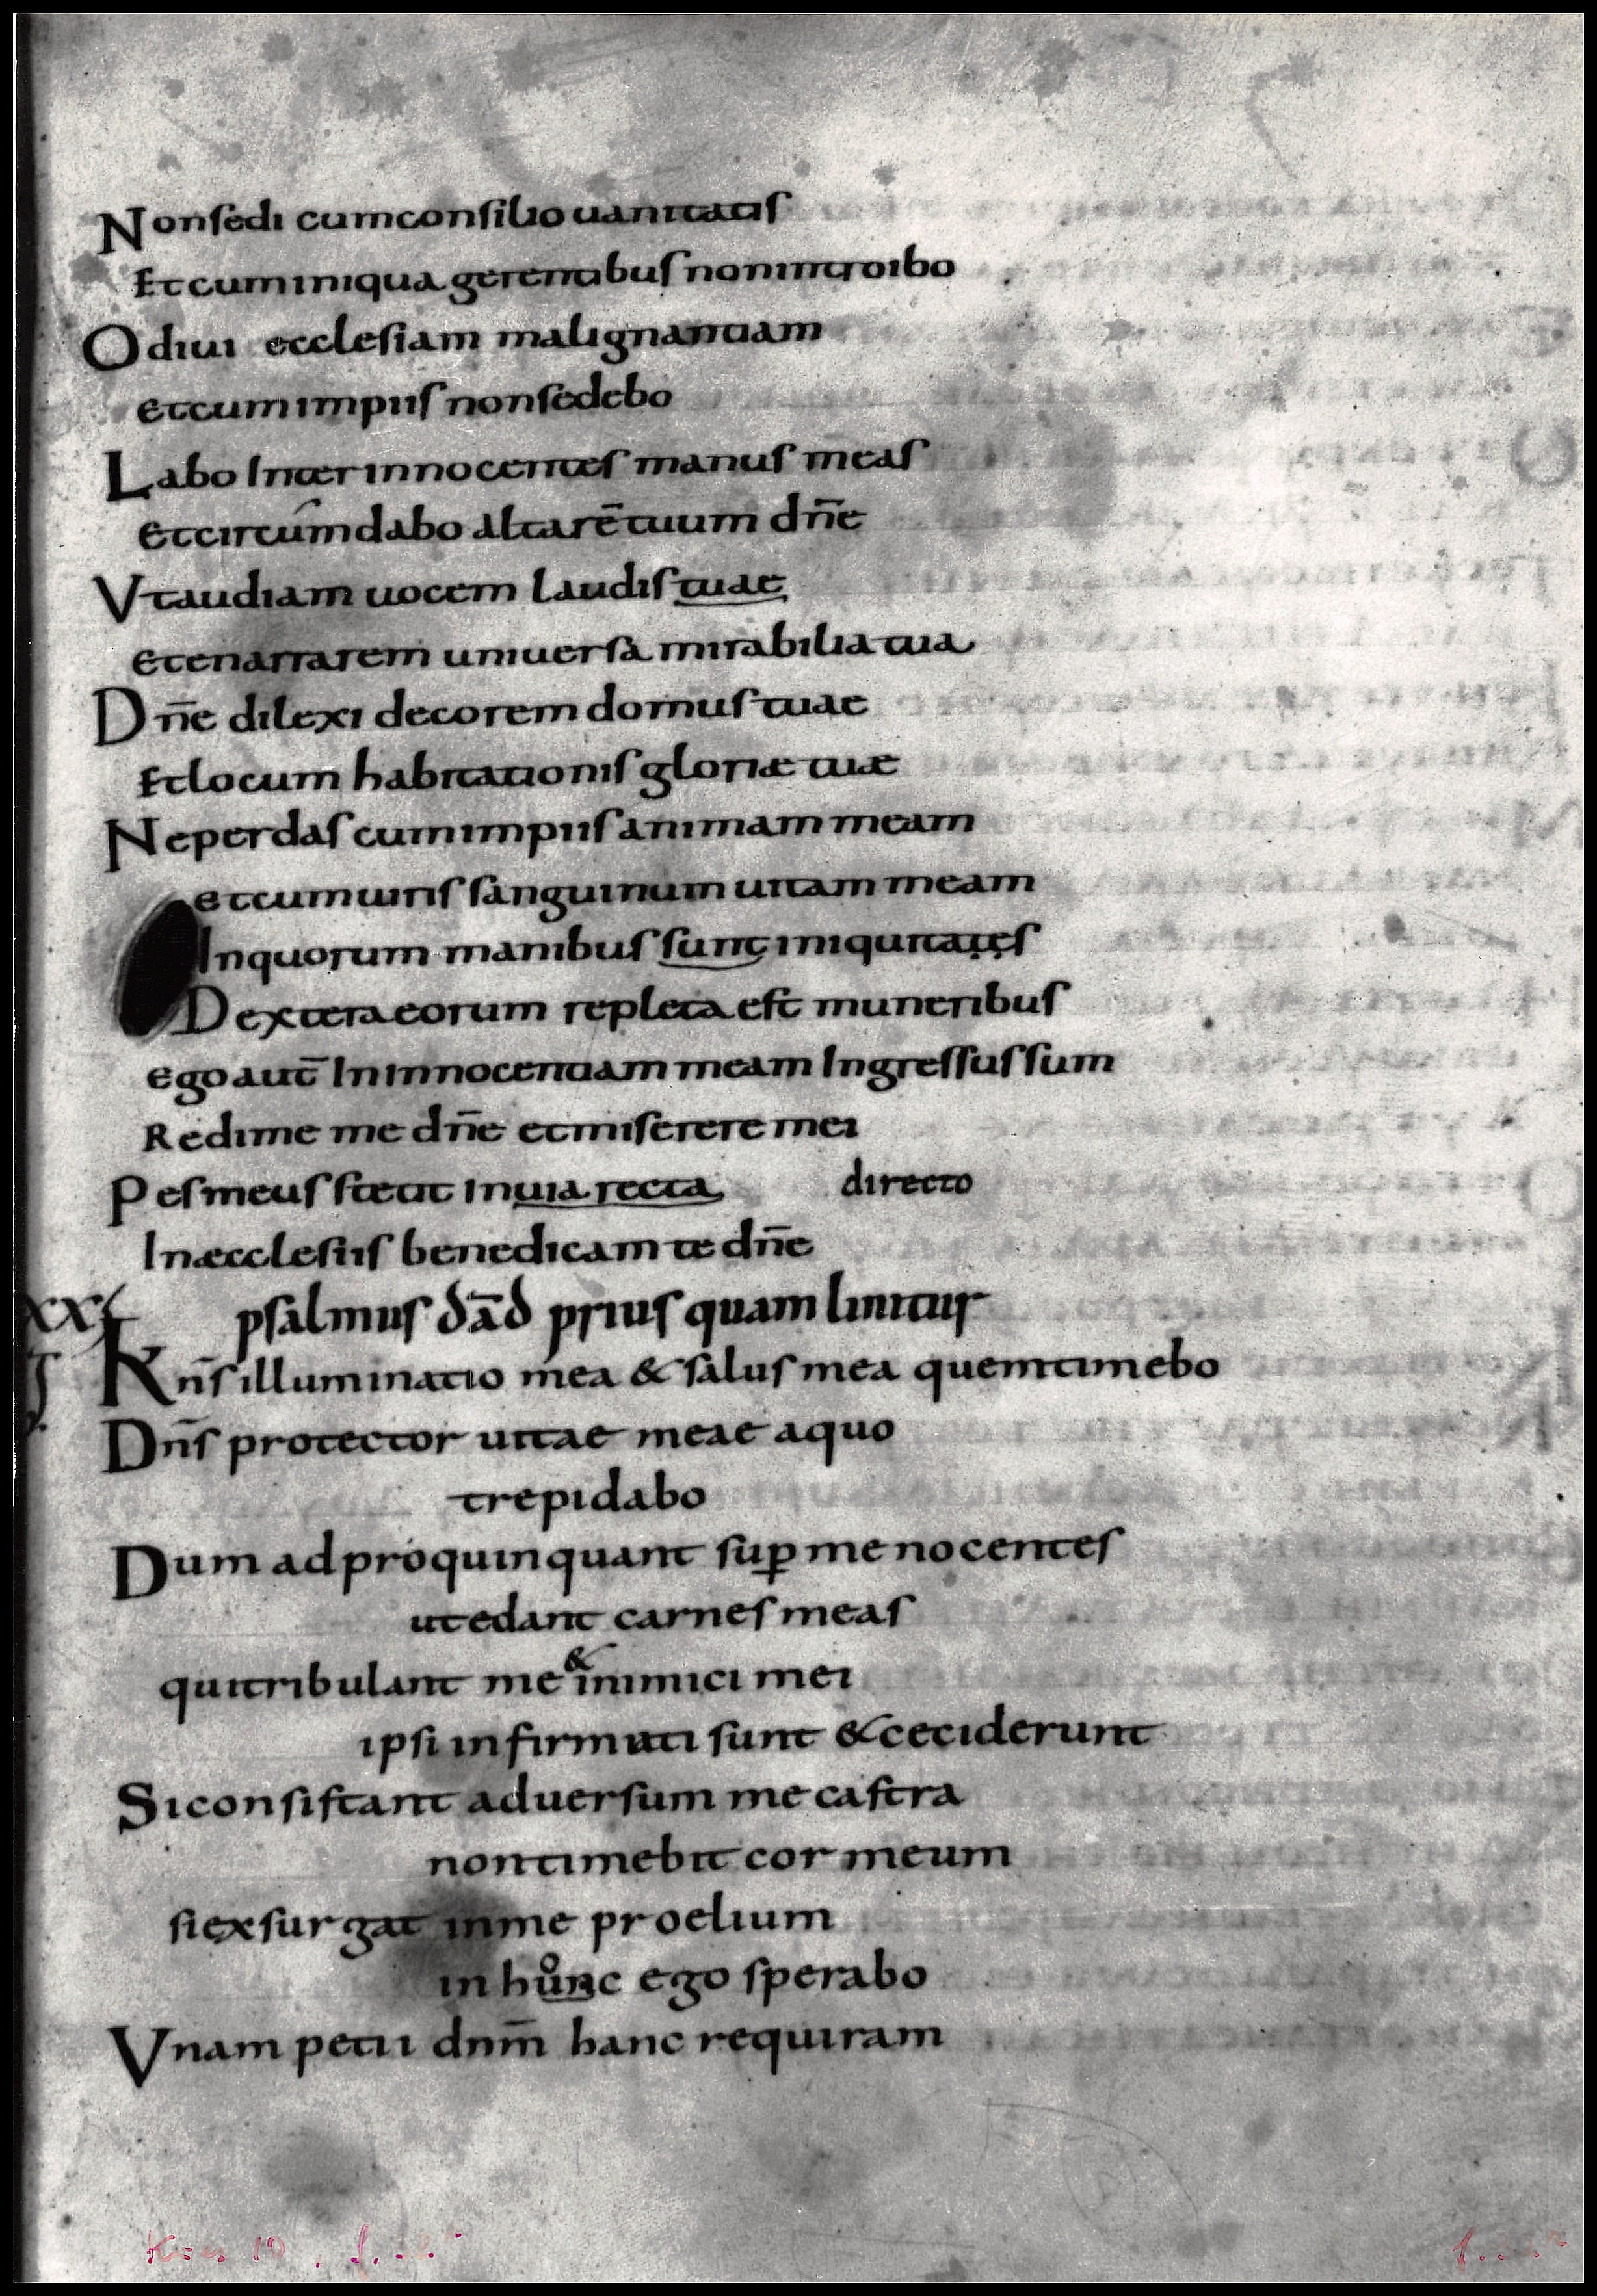 Non sedi cum consilio uanitatis
Et cum iniqua gerentibus non introibo
Odiui ecclesiam malignantiam
et cum impiis non sedebo
Labo Inter innocentes manus meas
Et circumdabo altarē tuum dn̄e
Vt audiam uocem laudis tuae
et enarrarem uniuersa mirabilia tua
Dn̄e dilexi decorem domus tuae
Et locum habitationis gloriæ tuæ
Ne perdas cum impiis animam meam
et cum uiris sanguinum uitam meam
In quorum manibus sunt iniquitates
Dextera eorum repleta est muneribus
ego aut̄ In innocentiam meam Ingressus sum
Redime me dn̄e et miserere mei
Pes meus stetit in uia recta directo
In æcclesiis benedicam te dn̄e
XXVI psalmus dād prius quam linitur
Dn̄s illuminatio mea & salus mea quem timebo
Dn̄s protector uitae meae a quo
trepidabo
Dum adproquinquant sup̱ me nocentes
ut edant carnes meas
qui tribulant me & inimici mei
ipsi infirmati sunt & ceciderunt
Si consistant aduersum me castra
non timebit cor meum
si exsurgat in me proelium
in huncͦ ego sperabo
Vnam petii dnm̄ hanc requiram